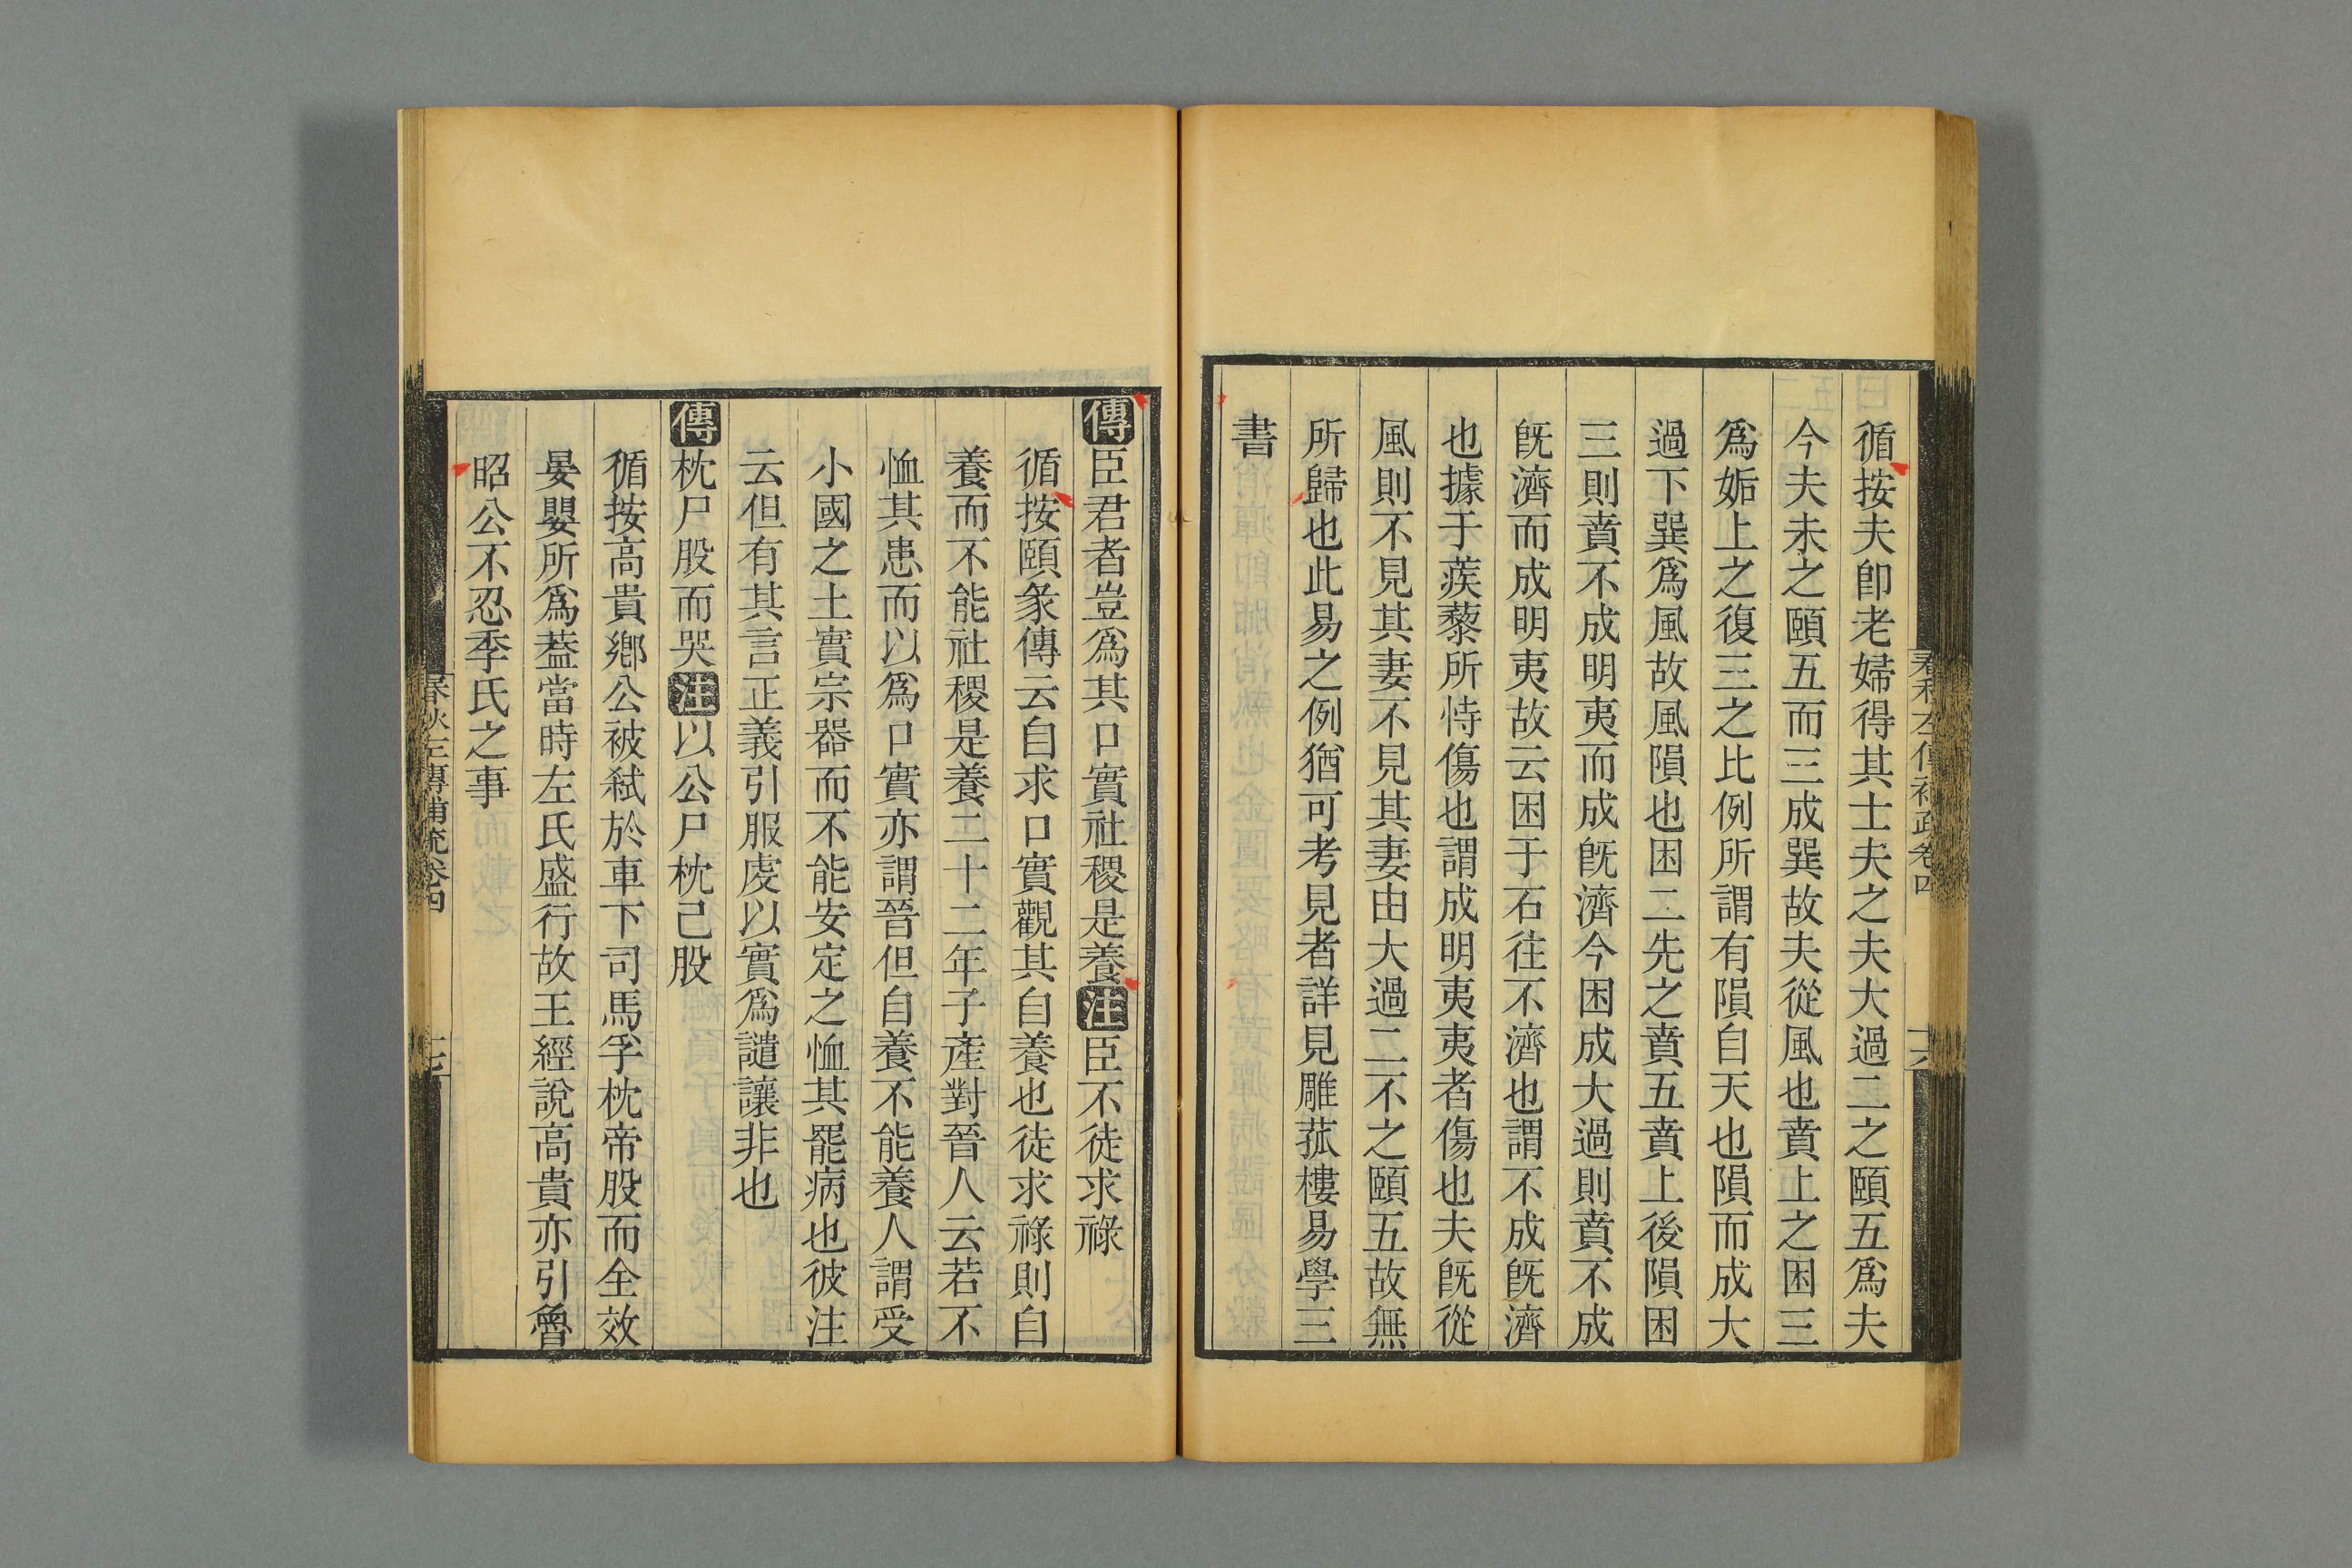 循按夫卽老婦得其士夫之夫大過二之頤五爲夫
今夫未之頤五而三成巽故夫從風也賁上之困三
爲姤上之復三之比例所謂有隕自天也隕而成大
過下巽爲風故風隕也困二先之賁五賁上後隕困
三則賁不成明夷而成旣濟今困成大過則賁不成
旣濟而成明夷故云困于石往不濟也謂不成旣濟
也據于蒺藜所恃傷也謂成明夷夷者傷也夫旣從
風則不見其妻不見其妻由大過二不之頤五故無
所歸也此易之例猶可考見者詳見雕菰樓易學三
書
傳臣君者豈爲其口實社稷是養注臣不徒求祿
循按頤彖傳云自求口實觀其自養也徒求祿則自
養而不能社稷是養二十二年子產對晉人云若不
恤其患而以爲口實亦謂晉但自養不能養人謂受
小國之土實宗器而不能安定之恤其罷病也彼注
云但有其言正義引服虔以實爲譴讓非也
傳枕尸股而哭注以公尸枕己股
循按高貴鄕公被弑於車下司馬孚枕帝股而全效
晏嬰所爲葢當時左氏盛行故王經說高貴亦引魯
昭公不忍季氏之事
春秋左傳補疏卷四
十七